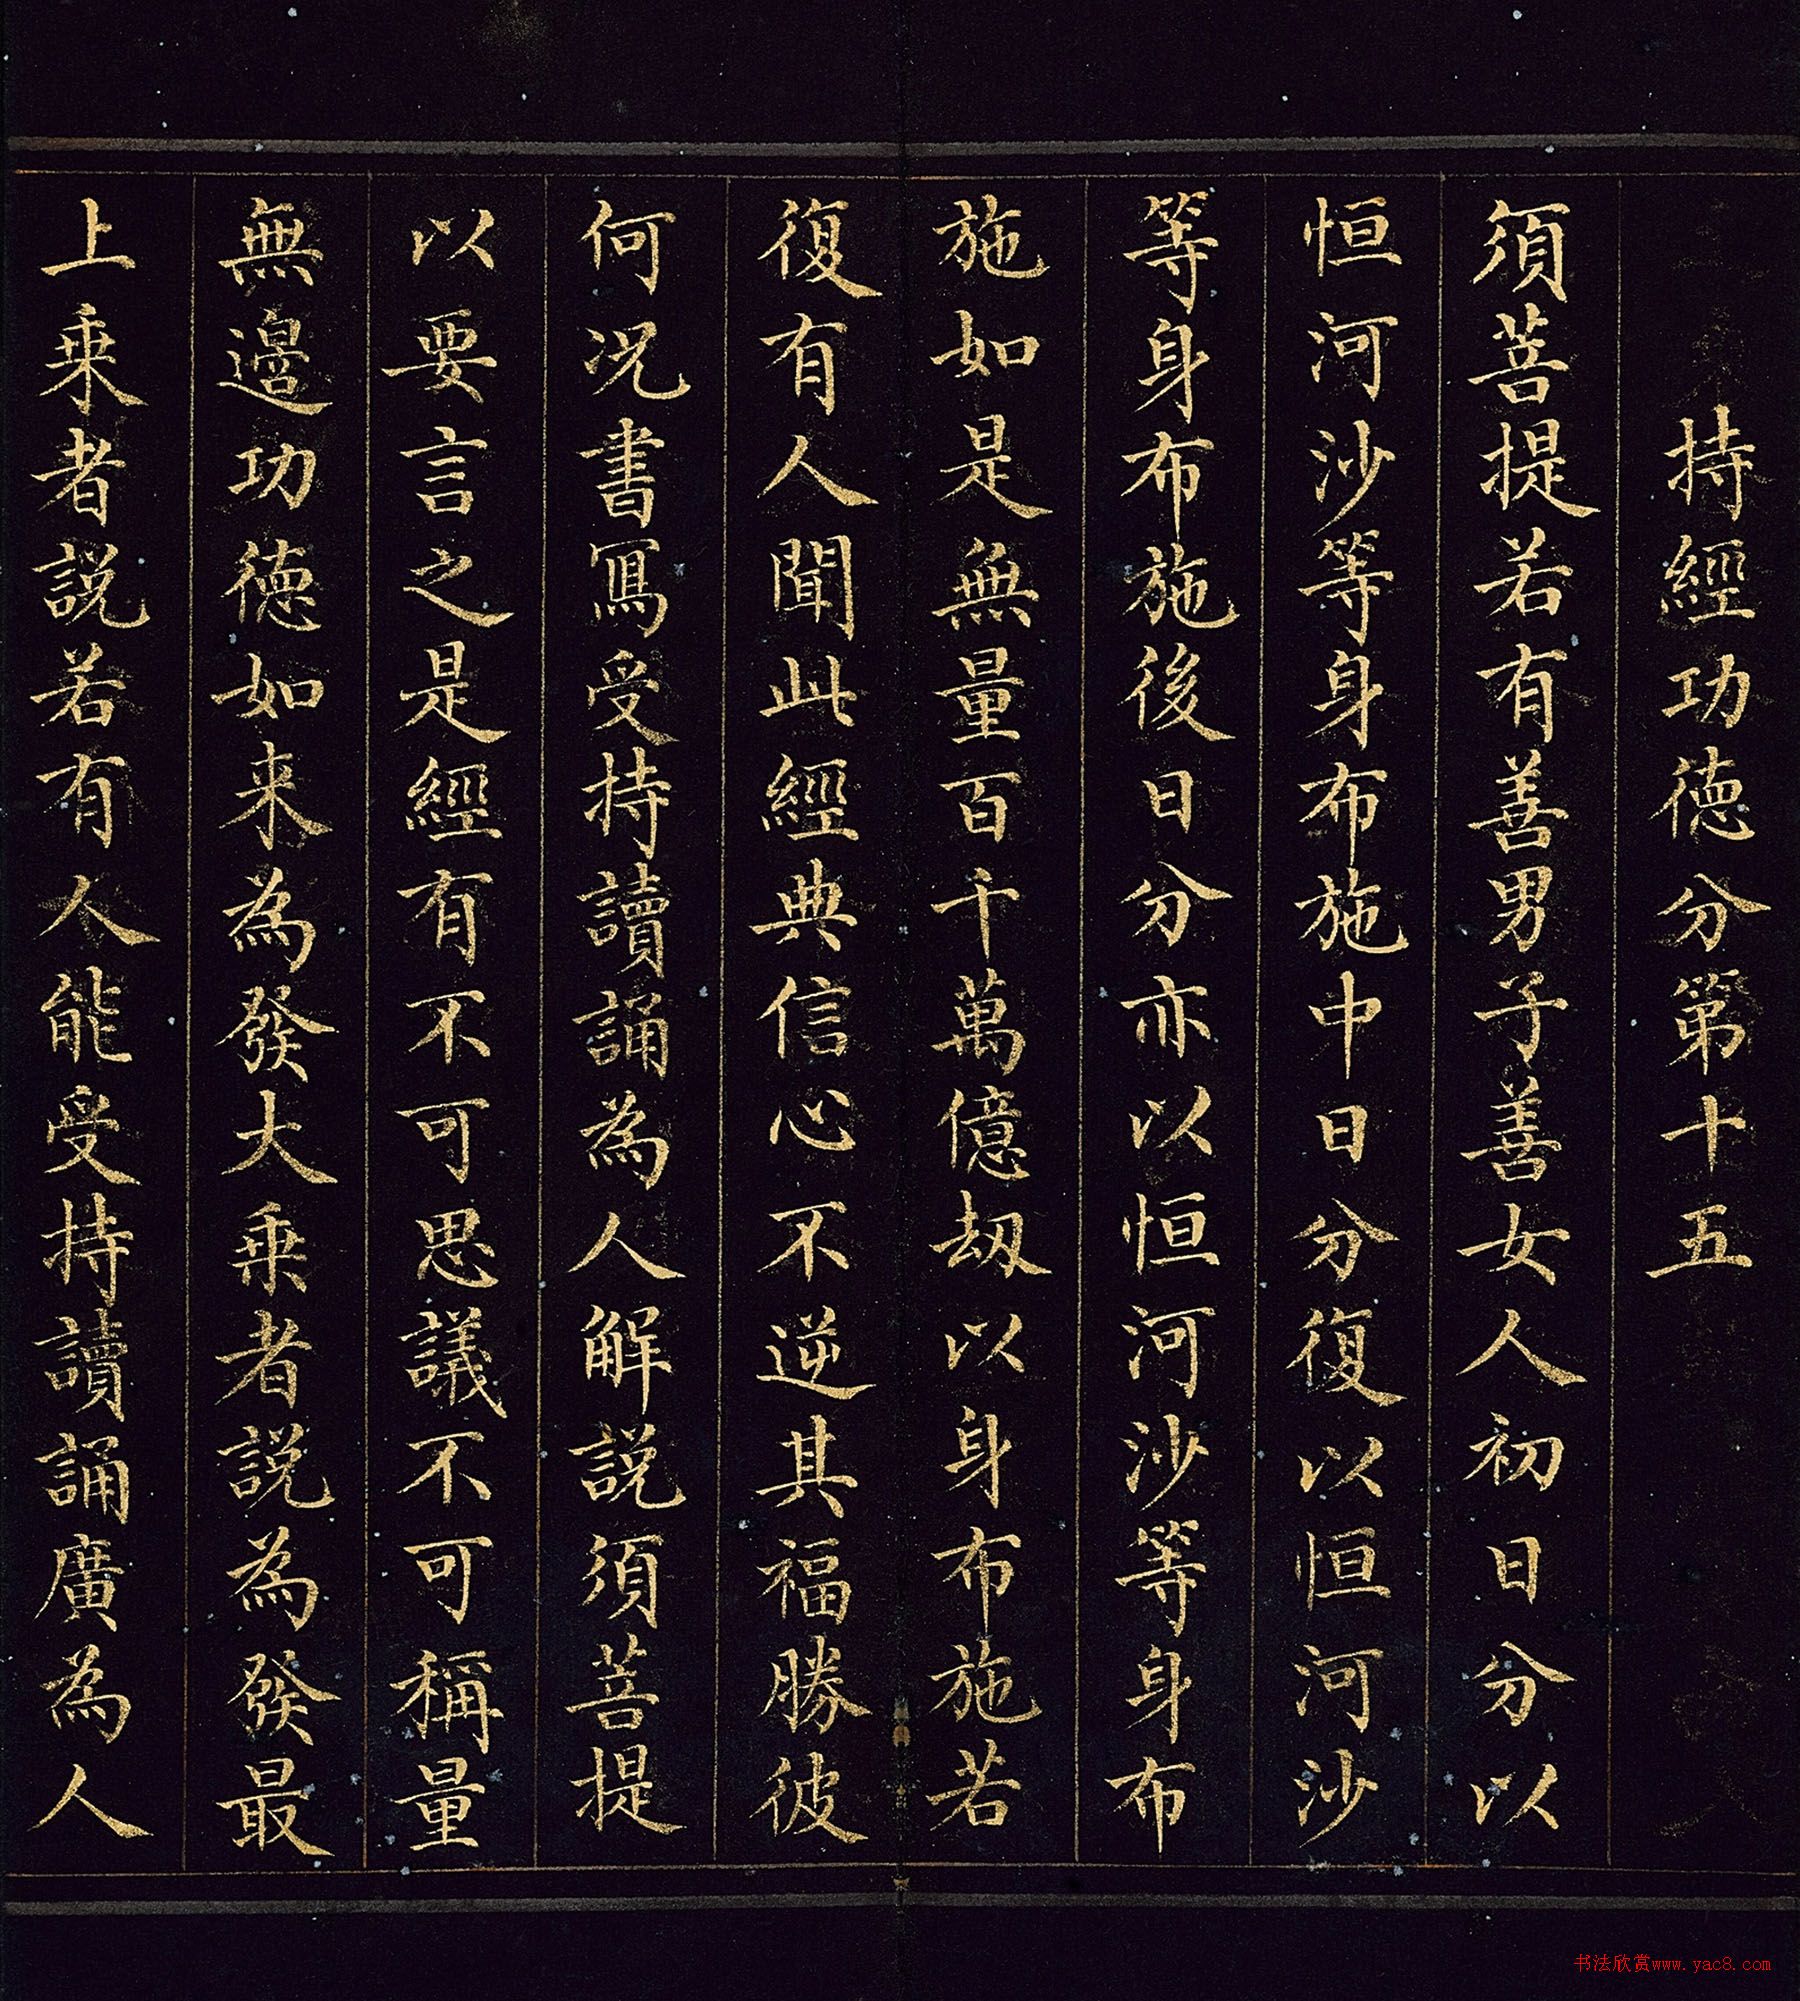 持經功徳分第十五
須菩提若有善男子善女人初日分以
恒河沙等身布施中日分復以恒河沙
等身布施後日分亦以恒河沙等身布
施如是無量百千萬億劫以身布施若
復有人聞此經典信心不逆其福勝彼
何况書寫受持讀誦為人解説須菩提
以要言之是經有不可思議不可稱量
無邊功徳如来為發大乗者説為發最
上乗者説若有人能受持讀誦廣為人
书法欣赏www.yac8.com